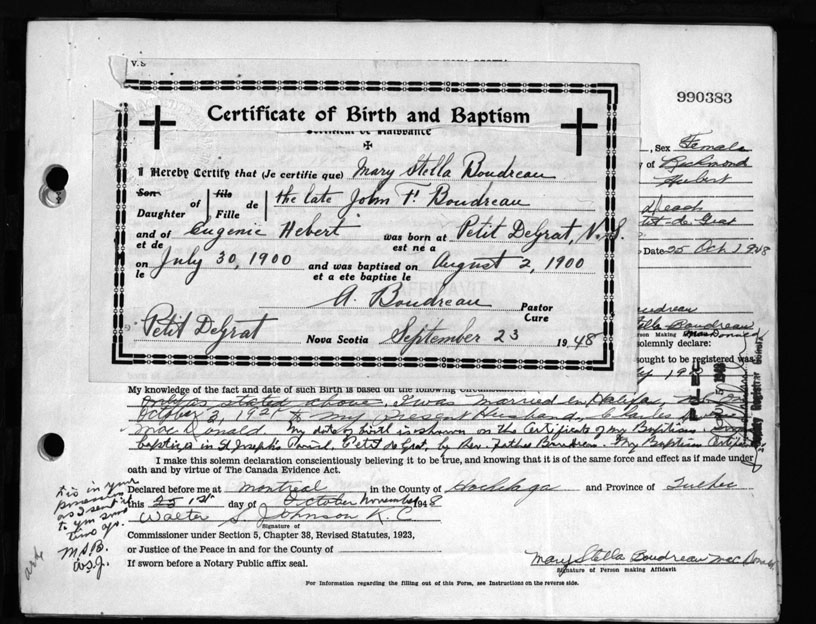 V.S
990383
Certificate of Birth and Baptism
I Hereby Certify that (Je certifie que) Mary Stella Boudreau
Son of fils de the late John F. Boudreau
Daughter Fille
and of Eugenie Hebert was born at Petit DeGrat, N.S.
et de est ne a
on July 30, 1900 and was baptised on August 2, 1900
le et a ete baptise le
A. Boudreau Pastor
Cure
Petit DeGrat Nova Scotia September 23 1948
, Sex Female
of Richmond
Hubert
Date 25 Oct 1948
Boudreau
Stella Boudreau
MacDonald
solemnly declare:
sought to be registered was
My knowledge of the fact and date of such Birth is based on the following
only as stated above. I was married in Halifax
October 2, 192 to my present Husband, Charles
MacDonald. My date of birth is shown on the Certificate of my Baptism
baptized in St Joseph's Parish, Petit de Grat, by Rev. Father Boudreau. My Baptism Certificate
I make this solemn declaration conscientiously believing it to be true, and knowing that it is of the same force and effect as if made under
oath and by virtue of The Canada Evidence Act.
Declared before me at Montreal in the County of Hochelaga and Province of Quebec
this day of October November 1948
Walter S. Johnson K.C
Signature of
Commissioner under Section 5, Chapter 38, Revised Statutes, 1923,
or Justice of the Peace in and for the County of
If sworn before a Notary Public affix seal.
Mary Stella Boudreau MacDonald
Signature of Person making Affidavit
For Information regarding the filling out of this Form, see Instructions on the reverse side.
is in your
possession
as I sent it
to you some
time ago.
M.S.B.
W.S.J.